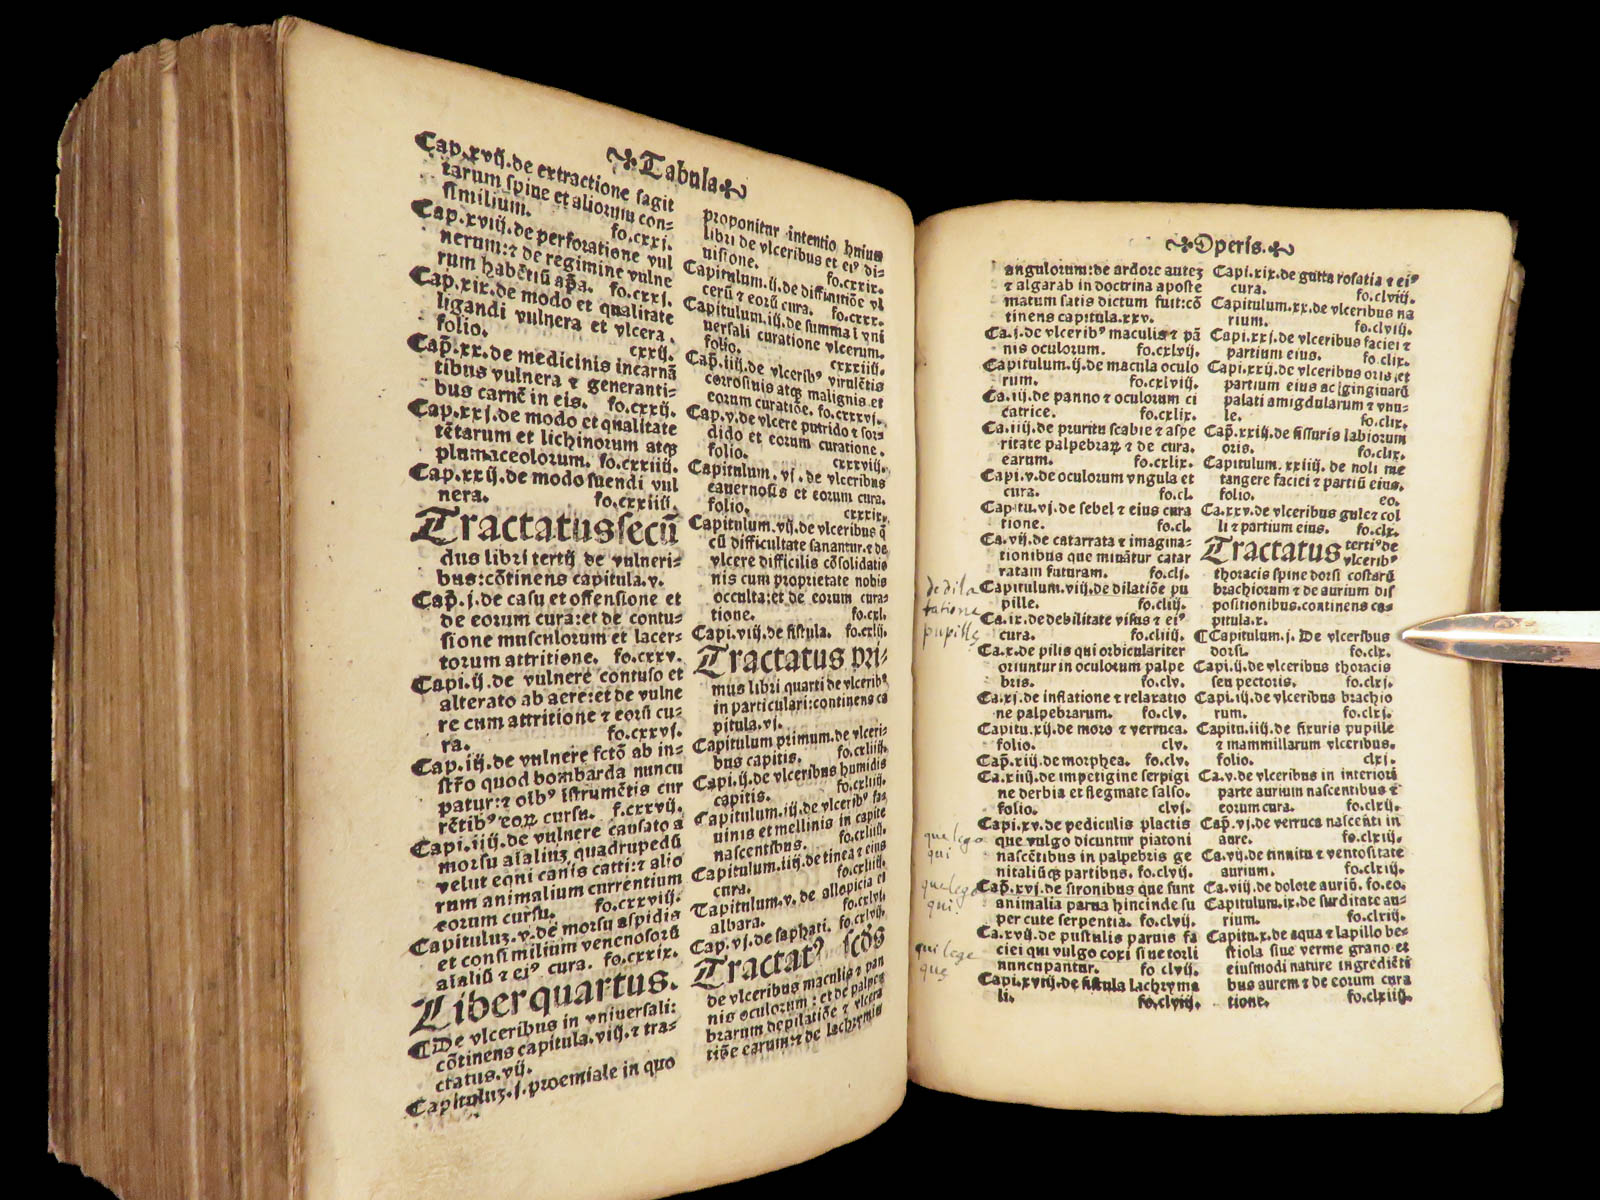 Tabula
Cap.xvij.de extractione sagit
tarum spine et aliorum con-
similium. fo.cxxj.
Cap.xviij.de perforatione vul
nerum:⁊ de regimine vulne
rum habētiū ap̄a. fo.cxxj.
Cap.xix.de modo et qualitate
ligandi vulnera et vlcera.
folio. cxxij.
Cap̄.xx.de medicinis incarnā
tibus vulnera ⁊ generanti-
bus carnē in eis. fo.cxxij.
Cap.xxj.de modo et qualitate
tētarum et lichinorum atqꝫ
plumaceolorum. fo.cxxiij.
Cap.xxij.de modo suendi vul
nera. fo.cxxiiij.
Tractatus secū
dus libri tertij de vulneri-
bus:cōtinens capitula.v.
Cap̄.j.de casu et offensione et
de eorum cura:et de contu-
sione musculorum et lacer-
torum attritione. fo.cxxv.
Capi.ij.de vulnere contuso et
alterato ab aere:et de vulne
re cum attritione ⁊ eorū cu-
ra. fo.cxxvj.
Cap.iij.de vulnere fctō ab in-
strō quod bombarda nuncu
patur:⁊ oībꝰ īstrumētis cur
rētibꝰ eoꝝ cursu. f.cxxvij.
Capi.iiij.de vulnere causato a
morsu aīaliuꝫ quadrupedū
velut equi canis catti:⁊ alio
rum animalium currentium
eorum cursu. fo.cxxviij.
Capituluꝫ.v.de morsu aspidis
et consimilium venenosorū
aīaliū ⁊ eiꝰ cura. fo.cxxix.
Liber quartus.
De vlceribus in vniuersali:
cōtinens capitula.viij.⁊ tra-
ctatus.vij.
Capituluꝫ.j.proemiale in quo
proponitur intentio huius
libri de vlceribus et eiꝰ di-
uisione. fo.cxxix.
Capitulum.ij.de diffinitiōe vl
cerū ⁊ eorū cura. fo.cxxx.
Capitulum.iij.de summa ī vni
uersali curatione vlcerum.
folio. cxxxiij.
Cap̄.iiij.de vlceribꝰ virulētis
corrosiuis atqꝫ malignis et
eorum curatiōe. fo.cxxxvj.
Cap.v.de vlcere putrido ⁊ sor-
dido et eorum curatione.
folio. cxxxviij.
Capitulum.vj.de vlceribus
cauernosis et eorum cura.
folio. cxxxix.
Capitulum.vij.de vlceribus q̄
cū difficultate sanantur.⁊ de
vlcere difficilis cōsolidatio
nis cum proprietate nobis
occulta:et de eorum cura-
tione. fo.cxl.
Capi.viij.de fistula. fo.cxlij.
Tractatus pri-
mus libri quarti de vlceribꝰ
in particulari:continens ca
pitula.vj.
Capitulum primum.de vlceri-
bus capitis. fo.cxliiij.
Capi.ij.de vlceribus humidis
capitis. fo.cxliiij.
Capitulum.iij.de vlceribꝰ fa-
uinis et mellinis in capite
nascentibus. fo.cxliiij.
Capitulum.iiij.de tinea ⁊ eius
cura. fo.cxliiij.
Capitulum.v.de allopicia et
albara. fo.cxlvj.
Cap.vj.de saphati. fo.cxlvij.
Tractatꝰ scōs
de vlceribus maculis ⁊ pan
nis oculorum:et de palpe
brarum depilatiōe ⁊ vlcera
tiōe earum:⁊ de lachrymis
Operis.
angulorum:de ardore auteꝫ
⁊ algarab in doctrina aposte
matum satis dictum fuit:cō
tinens capitula.xxv.
Ca.j.de vlceribꝰ maculis ⁊ pā
nis oculorum. fo.cxlvij.
Capitulum.ij.de macula oculo
rum. fo.cxlviij.
Ca.iij.de panno ⁊ oculorum ci
catrice. fo.cxlix.
Ca.iiij.de pruritu scabie ⁊ aspe
ritate palpebraꝝ ⁊ de cura.
earum. fo.cxlix.
Capi.v.de oculorum vngula et
cura. fo.cl.
Capitu.vj.de sebel ⁊ eius cura
tione. fo.cl.
Ca.vij.de catarrata ⁊ imagina-
tionibus que minātur catar
ratam futuram. fo.clj.
Capitulum.viij.de dilatiōe pu
pille. fo.cliij.
Ca.ix.de debilitate visus ⁊ eiꝰ
cura. fo.cliij.
Ca.x.de pilis qui orbiculariter
oriuntur in oculorum palpe
bris. fo.clv.
Ca.xj.de inflatione ⁊ relaxatio
ne palpebrarum. fo.clv.
Capitu.xij.de moro ⁊ verruca.
folio. clv.
Cap̄.xiij.de morphea. fo.clv.
Ca.xiiij.de impetigine serpigi
ne derbia et flegmate salso.
folio. clvj.
Capi.xv.de pediculis plactis
que vulgo dicuntur piatoni
nascētibus in palpebris ge
nitaliūqꝫ partibus. fo.clvij.
Cap̄.xvj.de sironibus que sunt
animalia parua hincinde su
per cute serpentia. fo.clvij.
Ca.xvij.de pustulis paruis fa
ciei qui vulgo coxi siue torli
nuncupantur. fo clvij.
Capi.xviij.de fistula lachryma
li. fo.clviij.
de dila
tatione
pupille
que lego
qui
que lego
qui.
qui lege
que
Capi.xix.de gutta rosatia ⁊ eiꝰ
cura. fo.clviij.
Capitulum.xx.de vlceribus na
rium. fo.clviij.
Capi.xxj.de vlceribus faciei ⁊
partium eius. fo clix.
Capi.xxij.de vlceribus oris,et
partium eius ac gingiuarū
palati amigdularum ⁊ vuu-
le. fo.clix.
Cap̄.xxiij.de fissuris labiorum
oris. fo.clix.
Capitulum.xxiiij.de noli me
tangere faciei ⁊ partiū eius.
folio. eo.
Ca.xxv.de vlceribus gule ⁊ col
li ⁊ partium eius. fo.clx.
Tractatus tertiꝰ de
vlceribꝰ
thoracis spine dorsi costarū
brachiorum ⁊ de aurium dis
positionibus.continens ca-
pitula.x.
Capitulum.j. De vlceribus
dorsi. fo.clx.
Capi.ij.de vlceribus thoracis
seu pectoris. fo.clxj.
Capi.iij.de vlceribus brachio
rum. fo.clxj.
Capitu.iiij.de fixuris pupille
⁊ mammillarum vlceribus.
folio. clxj.
Ca.v.de vlceribus in interiori
parte aurium nascentibus ⁊
eorum cura. fo.clxij.
Cap̄.vj.de verruca nascenti in
aure. fo.clxiij.
Ca.vij.de tinnitu ⁊ ventositate
aurium. fo.clxiij.
Ca.viij.de dolore auriū. fo.eo.
Capitulum.ix.de surditate au-
rium. fo.clxiij.
Capitu.x.de aqua ⁊ lapillo be-
stiola siue verme grano et
eiusmodi nature ingrediēti
bus aurem ⁊ de eorum cura
tione. fo.clxiiij.